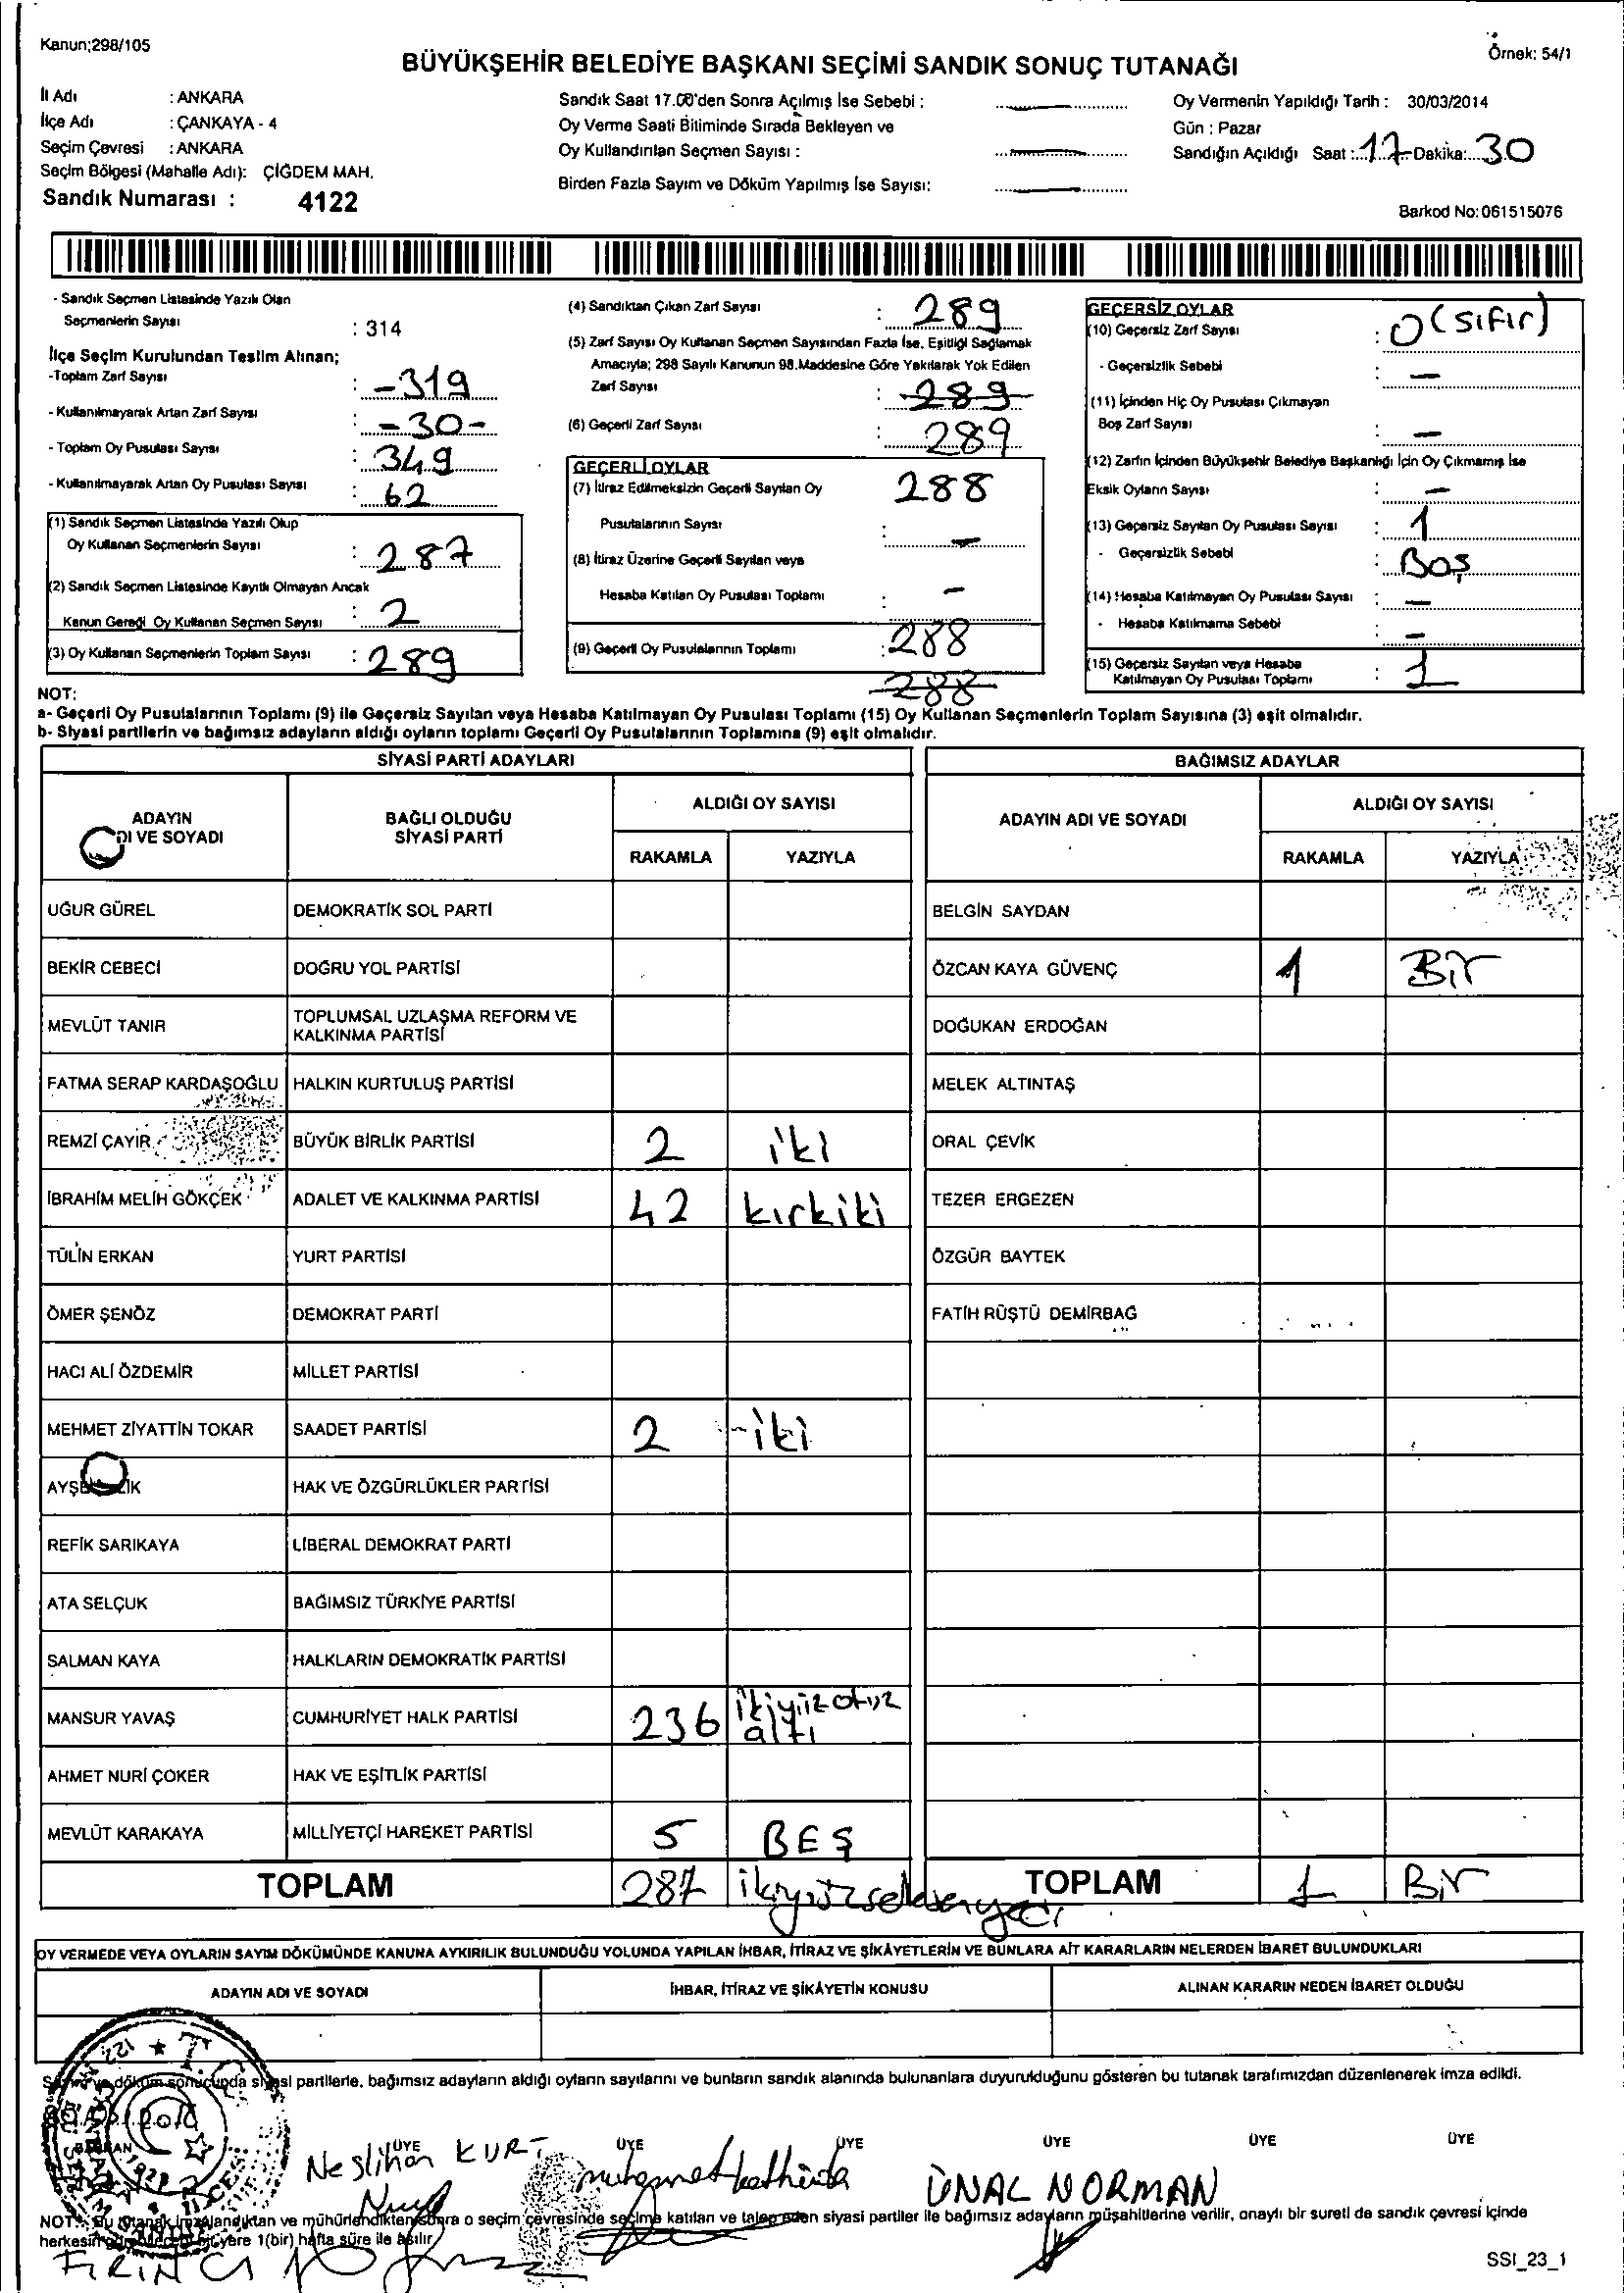 Kanun;298/105
Örnek: 54/1
BÜYÜKŞEHİR BELEDİYE BAŞKANI SEÇİMİ SANDIK SONUÇ TUTANAĞI
İl Adı : ANKARA
İlçe Adı : ÇANKAYA - 4
Seçim Çevresi : ANKARA
Seçim Bölgesi (Mahalle Adı): ÇİĞDEM MAH.
Sandık Numarası : 4122
Sandık Saat 17.00'den Sonra Açılmış İse Sebebi :
Oy Verme Saati Bitiminde Sırada Bekleyen ve
Oy Kullandırılan Seçmen Sayısı :
Birden Fazla Sayım ve Döküm Yapılmış İse Sayısı:
Oy Vermenin Yapıldığı Tarih : 30/03/2014
Gün : Pazar
Sandığın Açıldığı Saat : 17 Dakika: 30
Barkod No: 061515076
- Sandık Seçmen Listesinde Yazılı Olan
Seçmenlerin Sayısı : 314
İlçe Seçim Kurulundan Teslim Alınan;
-Toplam Zarf Sayısı : -319
- Kullanılmayarak Artan Zarf Sayısı : -30-
- Toplam Oy Pusulası Sayısı : 349
- Kullanılmayarak Artan Oy Pusulası Sayısı : 62
(1) Sandık Seçmen Listesinde Yazılı Olup
Oy Kullanan Seçmenlerin Sayısı : 287
(2) Sandık Seçmen Listesinde Kayıtlı Olmayan Ancak
Kanun Gereği Oy Kullanan Seçmen Sayısı : 2
(3) Oy Kullanan Seçmenlerin Toplam Sayısı : 289
(4) Sandıktan Çıkan Zarf Sayısı : 289
(5) Zarf Sayısı Oy Kullanan Seçmen Sayısından Fazla İse, Eşitliği Sağlamak
Amacıyla; 298 Sayılı Kanunun 98.Maddesine Göre Yakılarak Yok Edilen
Zarf Sayısı : 289
(6) Geçerli Zarf Sayısı : 289
GEÇERLİ OYLAR
(7) İtiraz Edilmeksizin Geçerli Sayılan Oy 288
Pusulalarının Sayısı : -
(8) İtiraz Üzerine Geçerli Sayılan veya
Hesaba Katılan Oy Pusulası Toplamı : -
(9) Geçerli Oy Pusulalarının Toplamı : 288
288
GEÇERSİZ OYLAR
(10) Geçersiz Zarf Sayısı : 0 (sıfır)
- Geçersizlik Sebebi : -
(11) İçinden Hiç Oy Pusulası Çıkmayan
Boş Zarf Sayısı : -
(12) Zarfın İçinden Büyükşehir Belediye Başkanlığı İçin Oy Çıkmamış İse
Eksik Oyların Sayısı : -
(13) Geçersiz Sayılan Oy Pusulası Sayısı : 1
- Geçersizlik Sebebi : Boş
(14) Hesaba Katılmayan Oy Pusulası Sayısı : -
- Hesaba Katılmama Sebebi : -
(15) Geçersiz Sayılan veya Hesaba
Katılmayan Oy Pusulası Toplamı : 1
NOT:
a- Geçerli Oy Pusulalarının Toplamı (9) ile Geçersiz Sayılan veya Hesaba Katılmayan Oy Pusulası Toplamı (15) Oy Kullanan Seçmenlerin Toplam Sayısına (3) eşit olmalıdır.
b- Siyasi partilerin ve bağımsız adayların aldığı oyların toplamı Geçerli Oy Pusulalarının Toplamına (9) eşit olmalıdır.
SİYASİ PARTİ ADAYLARI
ADAYIN
DI VE SOYADI
BAĞLI OLDUĞU
SİYASİ PARTİ
ALDIĞI OY SAYISI
RAKAMLA YAZIYLA
UĞUR GÜREL DEMOKRATİK SOL PARTİ
BEKİR CEBECİ DOĞRU YOL PARTİSİ
MEVLÜT TANIR TOPLUMSAL UZLAŞMA REFORM VE
KALKINMA PARTİSİ
FATMA SERAP KARDAŞOĞLU HALKIN KURTULUŞ PARTİSİ
REMZİ ÇAYIR BÜYÜK BİRLİK PARTİSİ 2 iki
İBRAHİM MELİH GÖKÇEK ADALET VE KALKINMA PARTİSİ 42 kırkiki
TÜLİN ERKAN YURT PARTİSİ
ÖMER ŞENÖZ DEMOKRAT PARTİ
HACI ALİ ÖZDEMİR MİLLET PARTİSİ
MEHMET ZİYATTİN TOKAR SAADET PARTİSİ 2 -iki
HAK VE ÖZGÜRLÜKLER PARTİSİ
REFİK SARIKAYA LİBERAL DEMOKRAT PARTİ
ATA SELÇUK BAĞIMSIZ TÜRKİYE PARTİSİ
SALMAN KAYA HALKLARIN DEMOKRATİK PARTİSİ
MANSUR YAVAŞ CUMHURİYET HALK PARTİSİ 236 ikiyüz otuz
altı
AHMET NURİ ÇOKER HAK VE EŞİTLİK PARTİSİ
MEVLÜT KARAKAYA MİLLİYETÇİ HAREKET PARTİSİ 5 BEŞ
TOPLAM 287 ikiyüzseksenyedi
BAĞIMSIZ ADAYLAR
ADAYIN ADI VE SOYADI
ALDIĞI OY SAYISI
RAKAMLA YAZIYLA
BELGİN SAYDAN
ÖZCAN KAYA GÜVENÇ 1 Bir
DOĞUKAN ERDOĞAN
MELEK ALTINTAŞ
ORAL ÇEVİK
TEZER ERGEZEN
ÖZGÜR BAYTEK
FATİH RÜŞTÜ DEMİRBAĞ
TOPLAM 1 Bir
OY VERMEDE VEYA OYLARIN SAYIM DÖKÜMÜNDE KANUNA AYKIRILIK BULUNDUĞU YOLUNDA YAPILAN İHBAR, İTİRAZ VE ŞİKÂYETLERİN VE BUNLARA AİT KARARLARIN NELERDEN İBARET BULUNDUKLARI
ADAYIN ADI VE SOYADI
İHBAR, İTİRAZ VE ŞİKÂYETİN KONUSU
ALINAN KARARIN NEDEN İBARET OLDUĞU
döküm sonucunda siyasi partilerle, bağımsız adayların aldığı oyların sayılarını ve bunların sandık alanında bulunanlara duyurulduğunu gösteren bu tutanak tarafımızdan düzenlenerek imza edildi.
ÜYE ÜYE ÜYE ÜYE ÜYE ÜYE
Neslihan KURT
ÜNAL NORMAN
NOT: Bu tutanak imzalandıktan ve mühürlendikten sonra o seçim çevresinde seçime katılan ve talep eden siyasi partiler ile bağımsız adayların müşahitlerine verilir, onaylı bir sureti de sandık çevresi içinde
bir yere 1(bir) hafta süre ile asılır.
FIRINCI
SSI_23_1